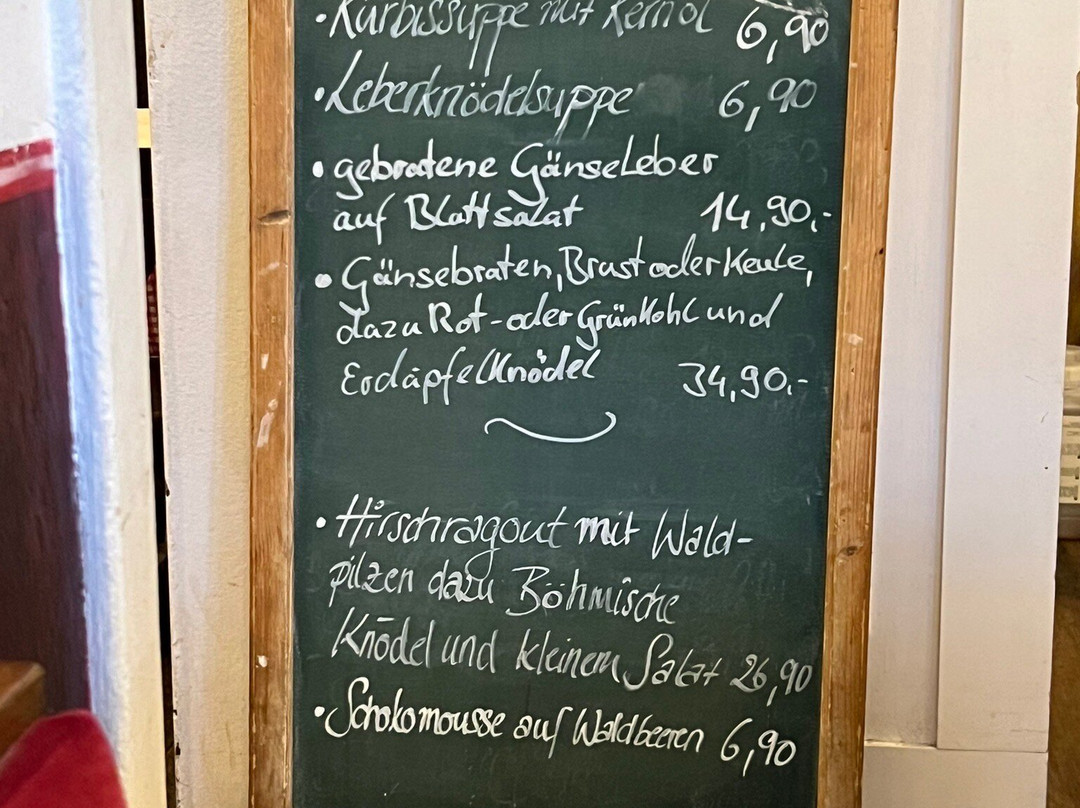 • Kürbissuppe mit Kernöl 6,90
• Leberknödelsuppe 6,90
• gebratene GänseLeber
auf Blattsalat 14,90,-
• Gänsebraten, Brust oder Keule,
dazu Rot- oder Grünkohl und
Erdäpfelknödel 34,90,-
• Hirschragout mit Wald-
pilzen dazu Böhmische
Knödel und kleinem Salat 26,90
• Schokomousse auf Waldbeeren 6,90